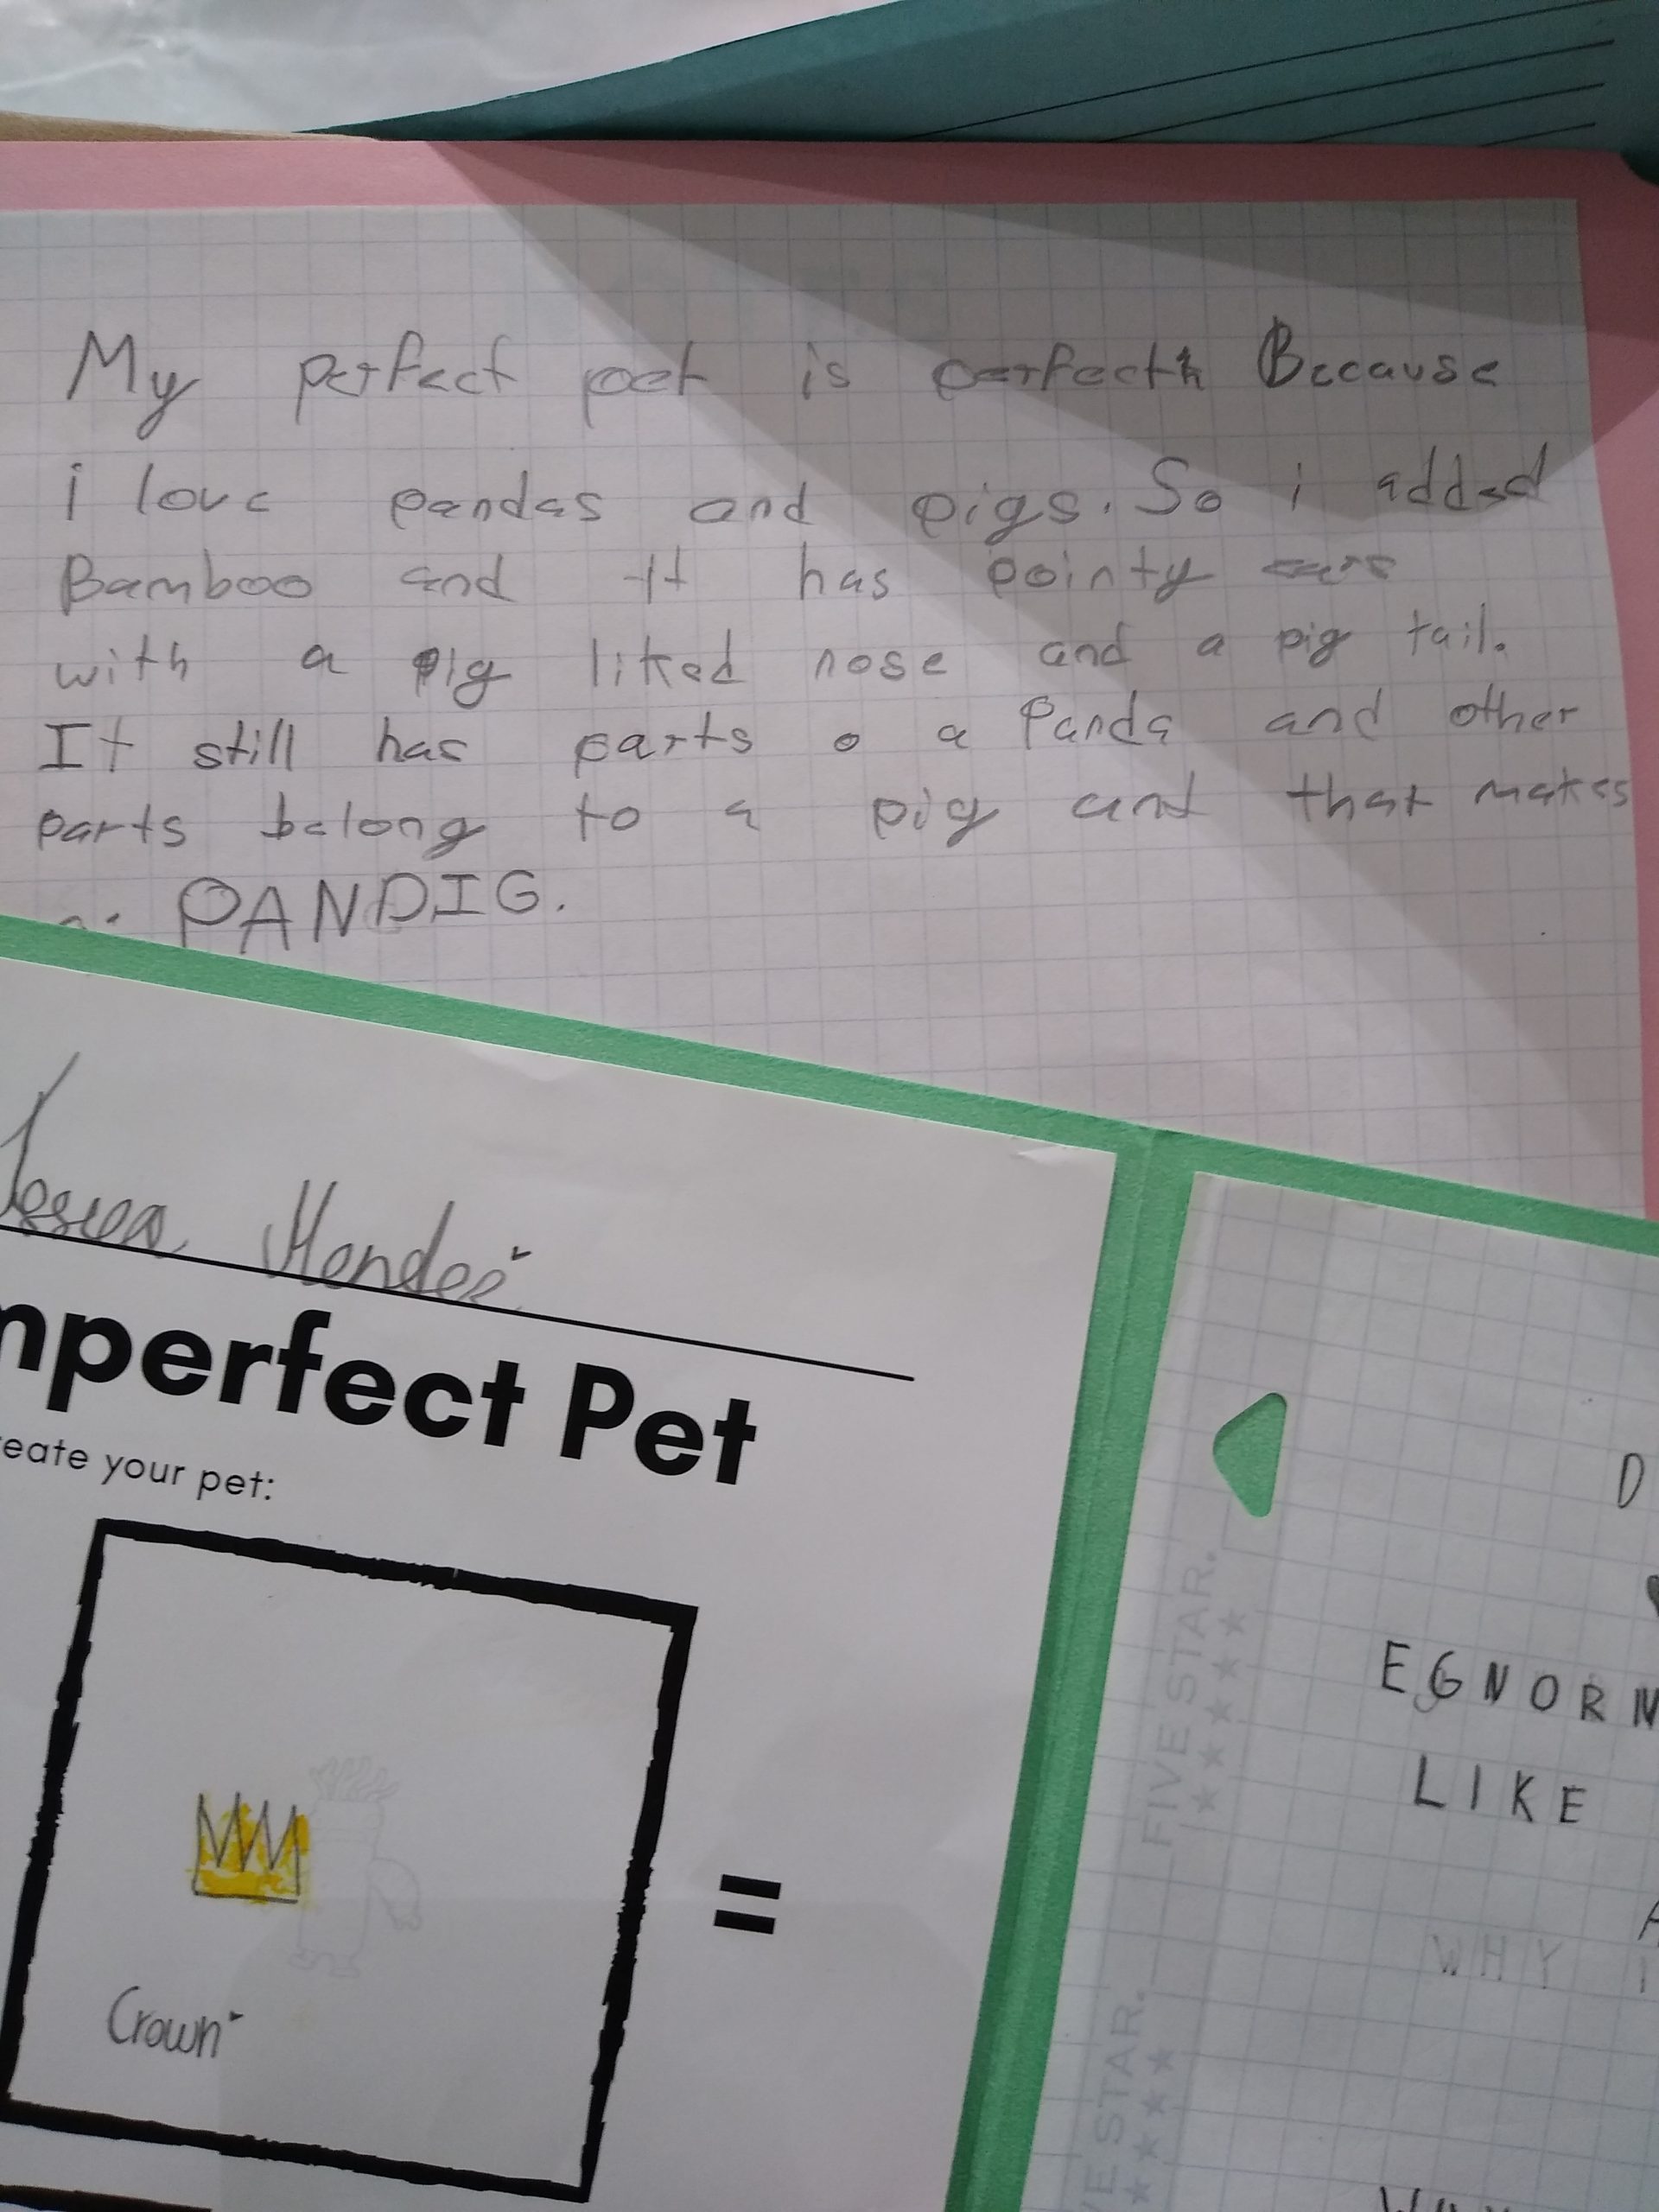 My perfect pet is perfect Because
i love pandas and pigs. So i added
Bamboo and it has pointy ears
with a pig liked nose and a pig tail.
It still has parts o a Panda and other
parts belong to a pig and that makes
a PANDIG.
nperfect Pet
reate your pet:
=
Crown
D
EGNORM
LIKE
A
WHY I
FIVE STAR.
VE STAR.